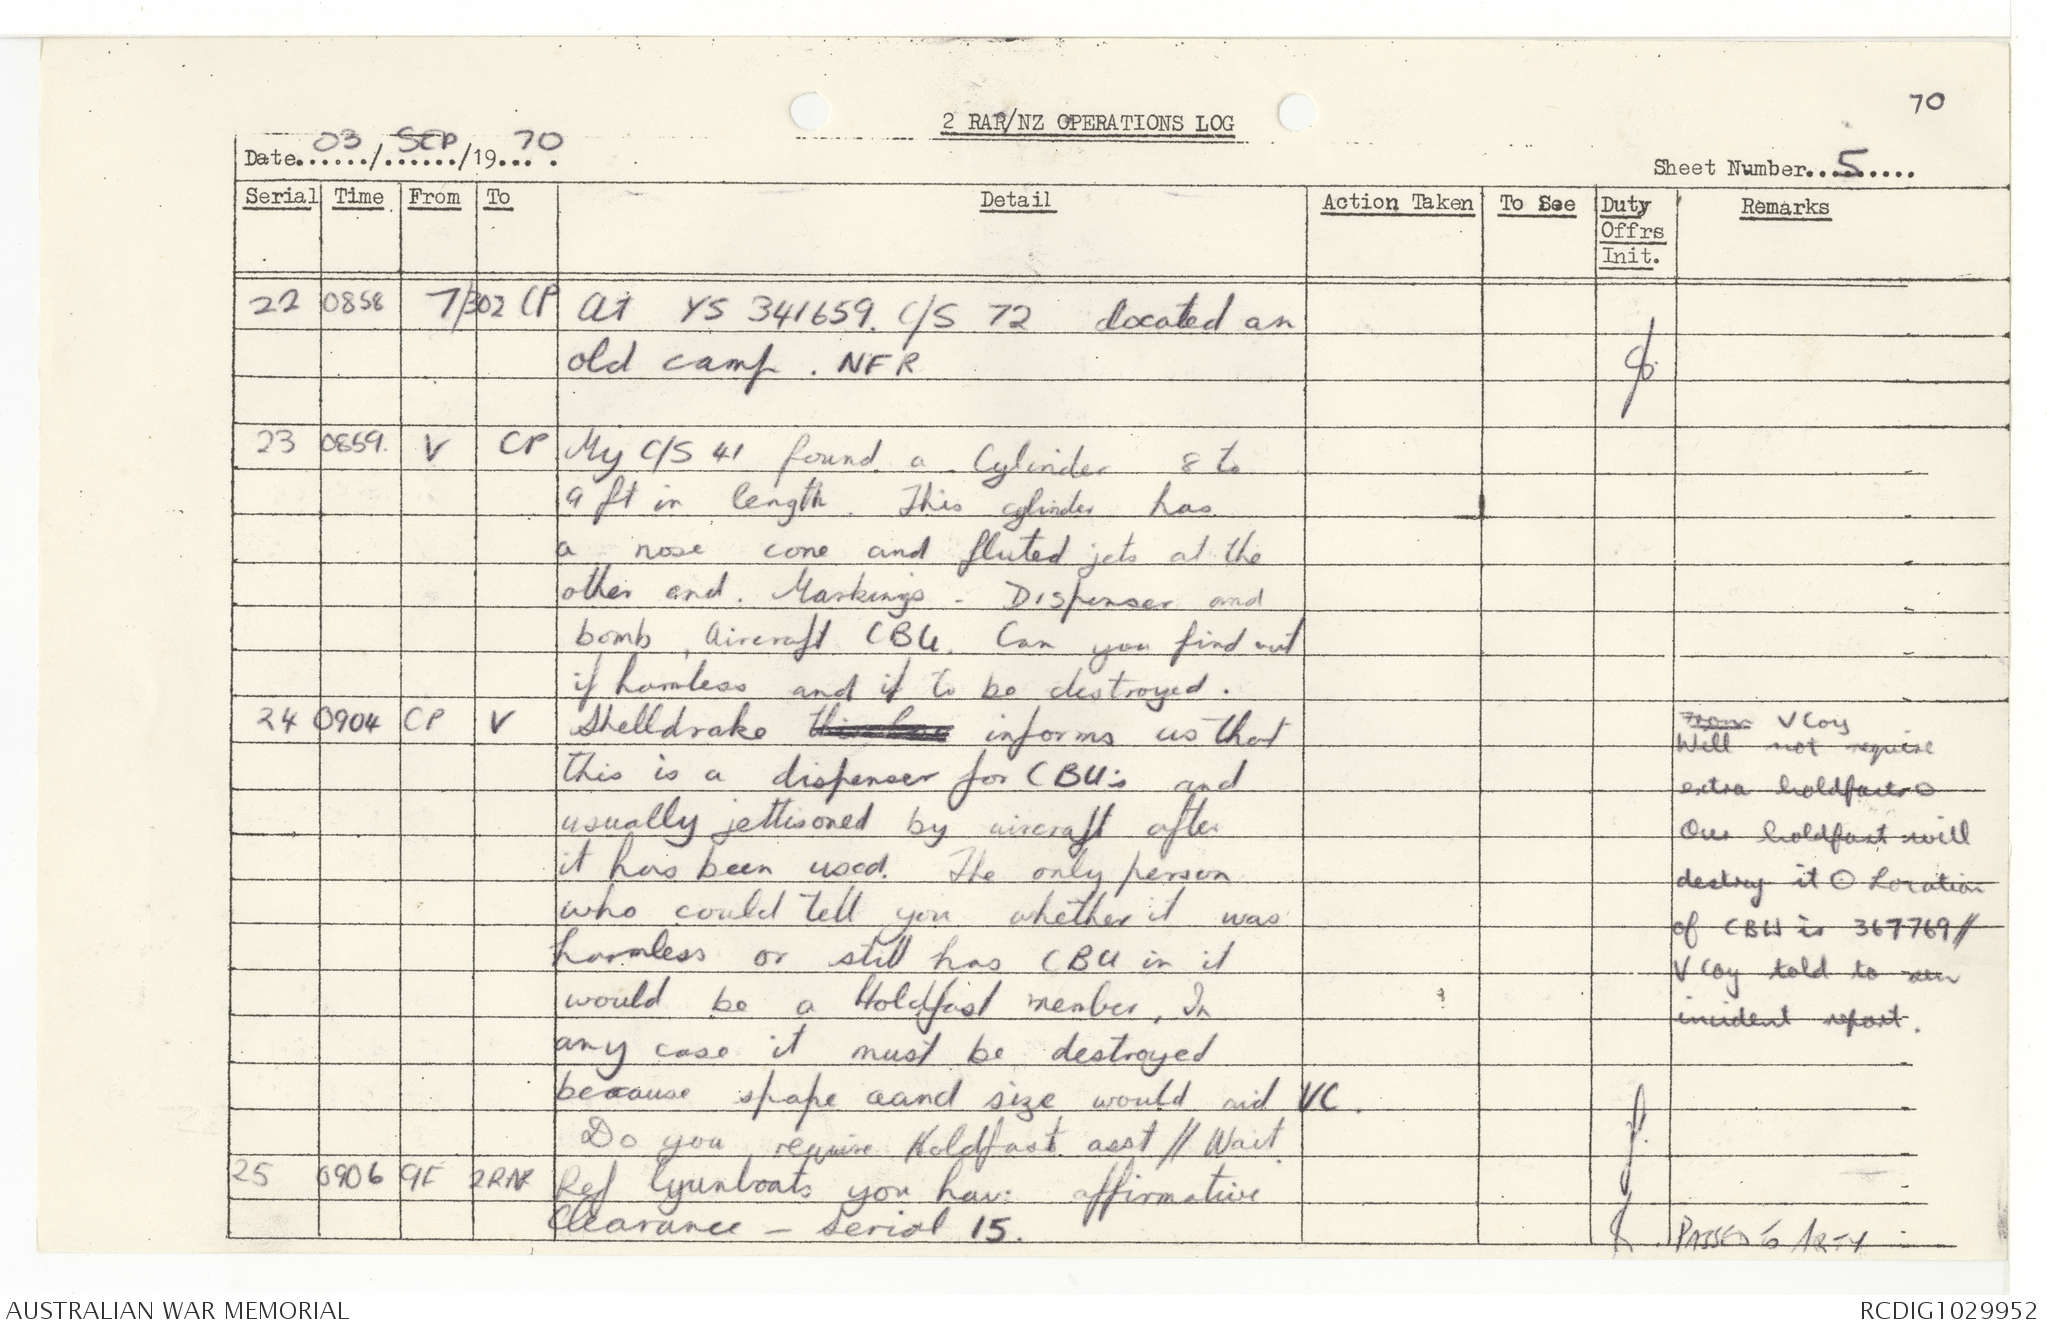 70
2 RAR/NZ OPERATIONS LOG
Date 03/SEP/1970
Sheet Number 5
Serial Time From To Detail Action Taken To See Duty Offrs Init. Remarks
22 0858 7/302 CP At YS 341659. C/S 72 located an
old camp. NFR
23 0859. V CP My C/S 41 found a Cylinder 8 to
9 ft in length. This cylinder has
a nose cone and fluted jets at the
other end. Markings - Dispenser and
bomb, Aircraft CBU. Can you find out
if harmless and if to be destroyed.
24 0904 CP V Shelldrake informs us that
this is a dispenser for CBU's and
usually jettisoned by aircraft after
it has been used. The only person
who could tell you whether it was
harmless or still has CBU in it
would be a Holdfast member, In
any case it must be destroyed
because spape aand size would aid VC.
Do you require Holdfast asst // Wait
From V Coy
Will not require
extra holdfasts O
Our holdfast will
destroy it O Location
of CBU is 367769//
V Coy told to
incident report.
25 0906 9E Ref Gunboats you have affirmative
Clearance - serial 15.
PASSED TO ARTY
AUSTRALIAN WAR MEMORIAL
RCDIG1029952